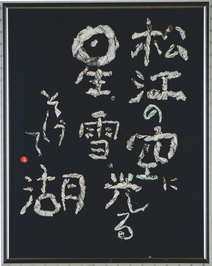 松江の空に
光る
星、雪、
そして
湖